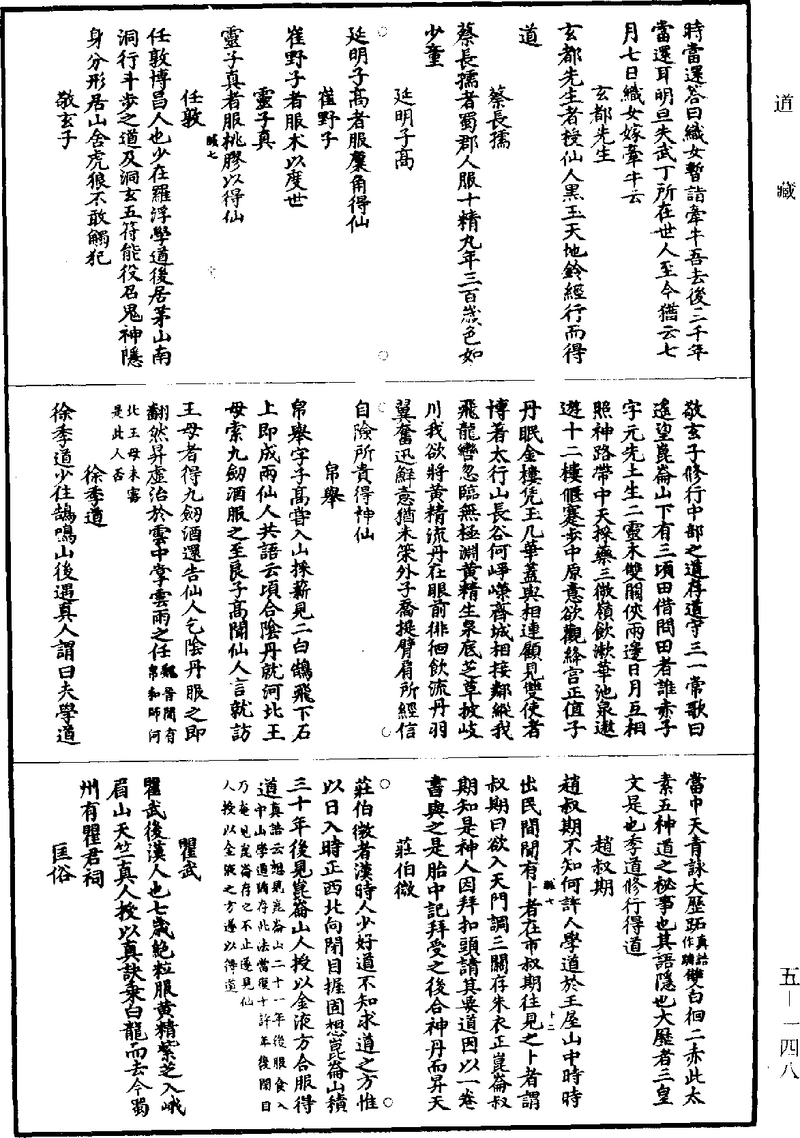 道藏
時當還答曰織女暫詣牽牛吾去後三千年
當還耳明旦失武丁所在世人至今猶云七
月七日織女嫁牽牛云
玄都先生
玄都先生者授仙人黑玉天地鈐經行而得
道
蔡長孺
蔡長孺者蜀郡人服十精丸年三百歲色如
少童
延明子高
延明子高者服麋角得仙
崔野子
崔野子者服朮以度世
靈子真
靈子真者服桃膠以得仙
任敦
任敦博昌人也少在羅浮學道後居茅山南
洞行斗步之道及洞玄五符能役召鬼神隱
身分形居山舍虎狼不敢觸犯
敬玄子
敬玄子修行中部之道存道守三一常歌曰
遙望崑崙山下有三頃田借問田者誰赤子
字元先上生二靈木雙闕俠兩邊日月互相
照神路帶中天採藥三微嶺飲漱華池泉遨
遊十二樓偃蹇步中原意欲觀絳宮正值子
丹眠金樓凭玉几華蓋與相連顧見雙使者
博著太行山長谷何崢嶸齊城相接鄰縱我
飛龍轡忽臨無極淵黃精生泉底芝草披岐
川我欲將黃精流丹在眼前徘徊飲流丹羽
翼奮迅鮮意猶未策外子喬提臂肩所經信
自險所貴得神仙
帛舉
帛舉字子高嘗入山採薪見二白鵠飛下石
上即成兩仙人共語云頃合陰丹就河北王
母索九劒酒服之至良子高聞仙人言就訪
王母者得九劒酒還告仙人乞陰丹服之即
翻然昇虛治於雲中掌雲雨之任魏晉間有帛和師河
北王母未審
是此人否
徐季道
徐季道少住鵠鳴山後遇真人謂曰夫學道
當巾天青詠大歷跖真誥作蹠雙白徊二赤此太
素五神道之秘事也其語隱也大歷者三皇
文是也季道修行得道
趙叔期
趙叔期不知何許人學道於王屋山中時時
出民間聞有卜者在市叔期往見之卜者謂
叔期曰欲入天門調三關存朱衣正崑崙叔
期知是神人因拜扣頭請其要道因以一卷
書與之是胎中記拜受之後合神丹而昇天
莊伯微
莊伯微者漢時人少好道不知求道之方惟
以日入時正西北向閉目握固想崑崙山積
三十年後見崑崙山人授以金液方合服得
道真誥云想見崑崙山二十一年後服食入
中山學道猶存此法當復十許年後閉目
乃奄見崑崙存之不止遂見仙
人授以金液之方遂以得道
瞿武
瞿武後漢人也七歲絕粒服黃精紫芝入峨
眉山天竺真人授以真訣乘白龍而去今蜀
州有瞿君祠
匡俗
五—一四八